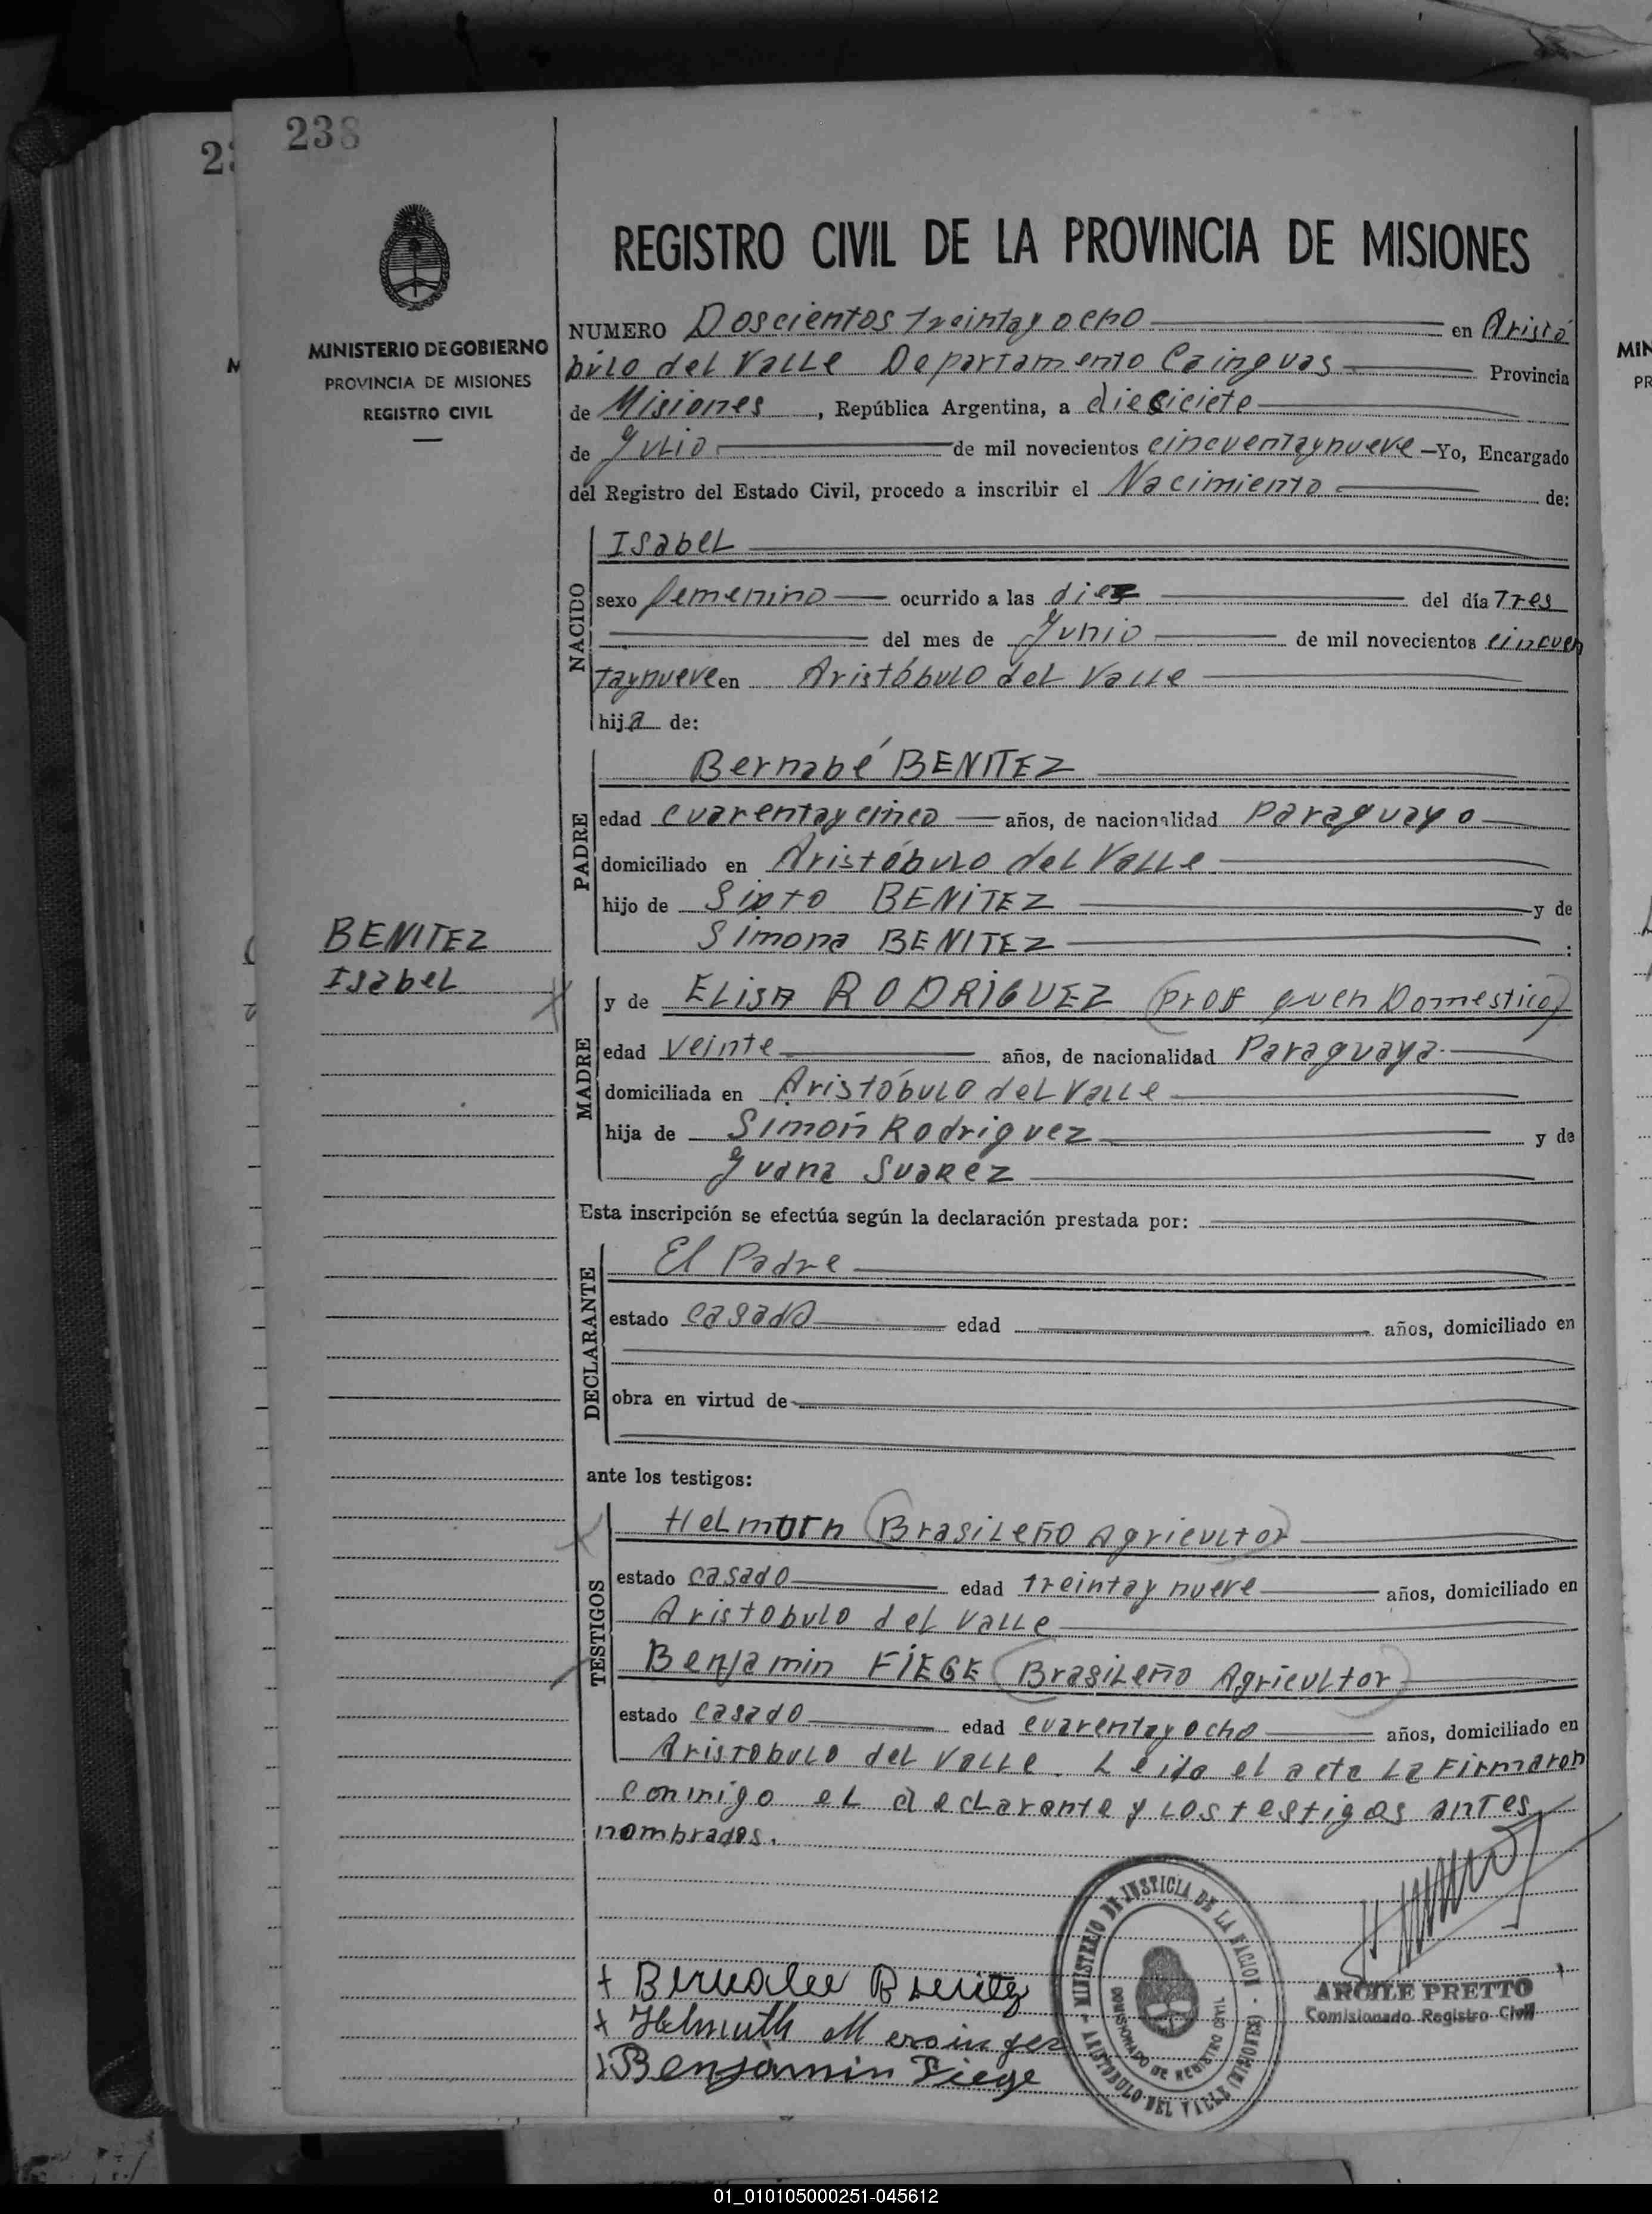 238
23
MINISTERIO DE GOBIERNO
PROVINCIA DE MISIONES
REGISTRO CIVIL
REGISTRO CIVIL DE LA PROVINCIA DE MISIONES
NUMERO Doscientos treintay ocho en Aristó
búlo del Valle Departamento Cainguas Provincia
de Misiones, República Argentina, a diesiciete
de Julio de mil novecientos cincuentaynueve —Yo, Encargado
del Registro del Estado Civil, procedo a inscribir el Nacimiento de:
NACIDO
Isabel
sexo femenino ocurrido a las diez del día Tres
del mes de Junio de mil novecientos cincuen
taynueve en Aristóbulo del Valle
hija de:
PADRE
Bernabé BENITEZ
edad cuarentaycinco años, de nacionalidad paraguayo
domiciliado en Aristóbulo del Valle
hijo de Sixto BENITEZ y de
Simona BENITEZ :
BENITEZ
Isabel
MADRE
y de ELISA RODRIGUEZ (Prof quen Domestico)
edad Veinte años, de nacionalidad Paraguaya
domiciliada en Aristóbulo del Valle
hija de Simón Rodriguez y de
Juana Suarez
Esta inscripción se efectúa según la declaración prestada por:
DECLARANTE
El Padre
estado casado edad años, domiciliado en
obra en virtud de
ante los testigos:
TESTIGOS
Helmuth (Brasileño Agricultor)
estado casado edad treintay nueve años, domiciliado en
Aristobulo del Valle
Benjamin FIEGE (Brasileño Agricultor)
estado casado edad cuarentay ocho años, domiciliado en
Aristobulo del Valle. Leida el acta La Firmaron
conmigo el declarante y los testigos antes
nombrados.
MINISTERIO DE JUSTICIA DE LA NACION
COMISIONADO DE REGISTRO CIVIL
ARISTOBULO DEL VALLE (MISIONES)
ARGILE PRETTO
Comisionado Registro Civil
+ Bernabe Benitez
+ Helmuth
+ Benjamin Fiege
01_010105000251-045612